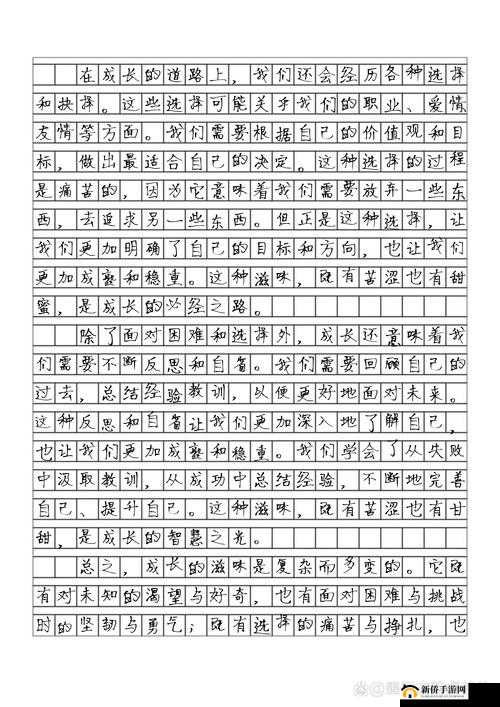 在成长的道路上，我们还会经历各种选择
和抉择。这些选择可能关乎我们的职业、爱情
友情等方面。我们需要根据自己的价值观和目
标，做出最适合自己的决定。这种选择的过程
是痛苦的，因为它意味着我们需要放弃一些东
西，去追求另一些东西。但正是这种选择，让
我们更加明确了自己的目标和方向，也让我们
更加成熟和稳重。这种滋味，既有苦涩也有甜
蜜，是成长的必经之路。
除了面对困难和选择外，成长还意味着我
们需要不断反思和自省。我们需要回顾自己的
过去，总结经验教训，以便更好地面对未来。
这种反思和自省让我们更加深入地了解自己，
也让我们更加成熟和稳重。我们学会了从失败
中汲取教训，从成功中总结经验，不断地完善
自己、提升自己。这种滋味，既有苦涩也有甘
甜，是成长的智慧之光。
总之，成长的滋味是复杂而多变的。它既
有对未知的渴望与好奇，也有面对困难与挑战
时的坚韧与勇气；既有选择的痛苦与挣扎，也
新侨手游网